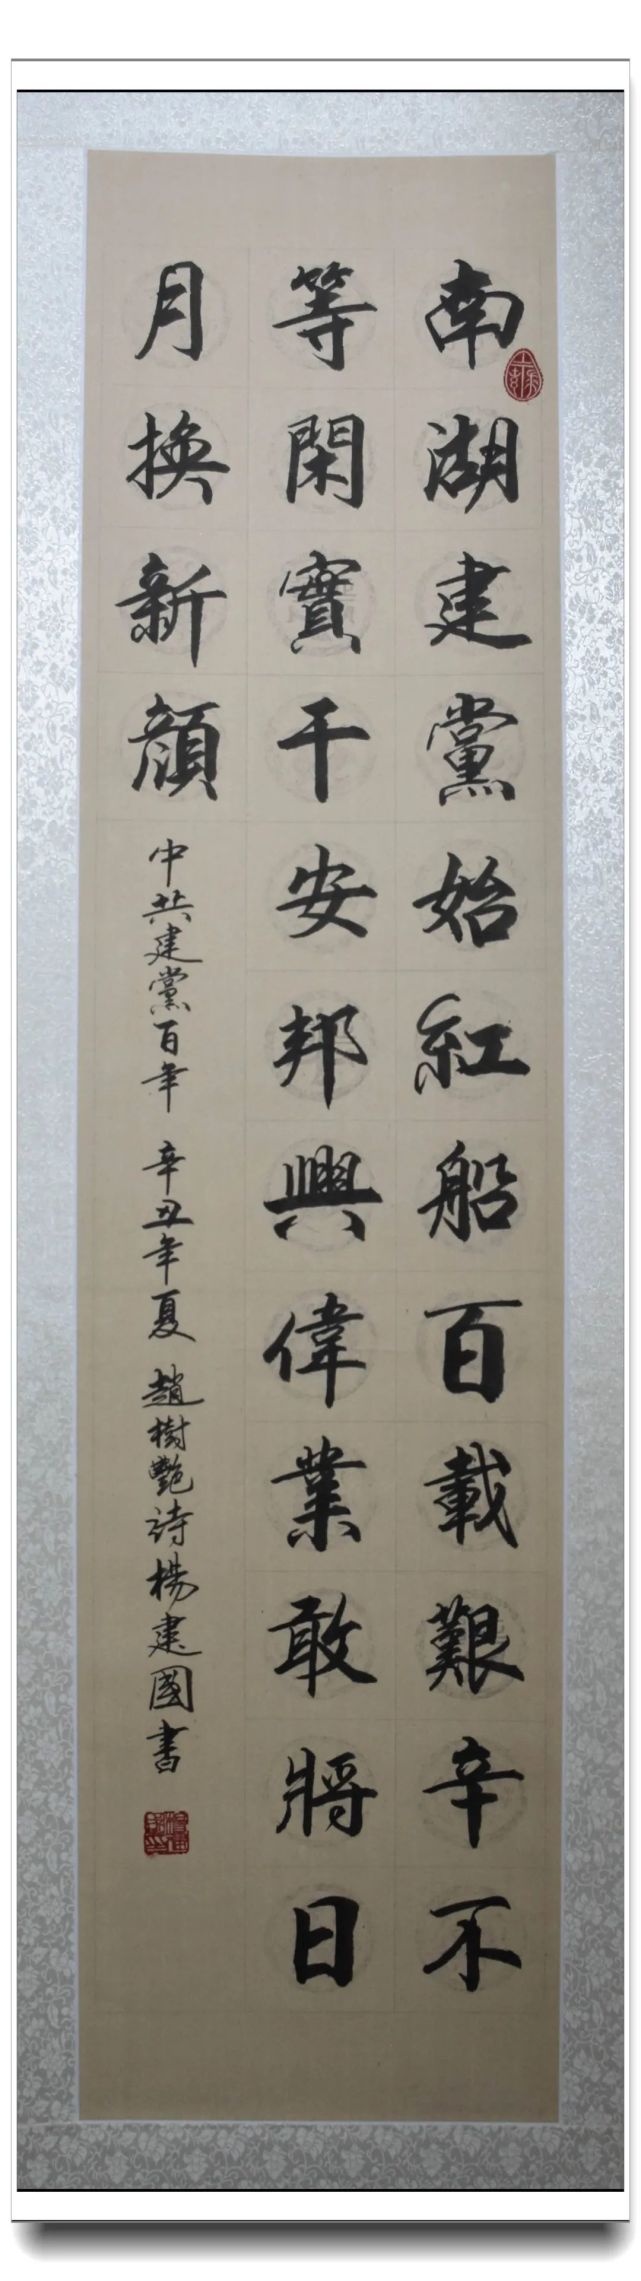 南湖建黨始紅船百載艱辛不
等閑實干安邦興偉業敢將日
月換新顏
中共建黨百年 辛丑年夏 趙樹艷詩楊建國書